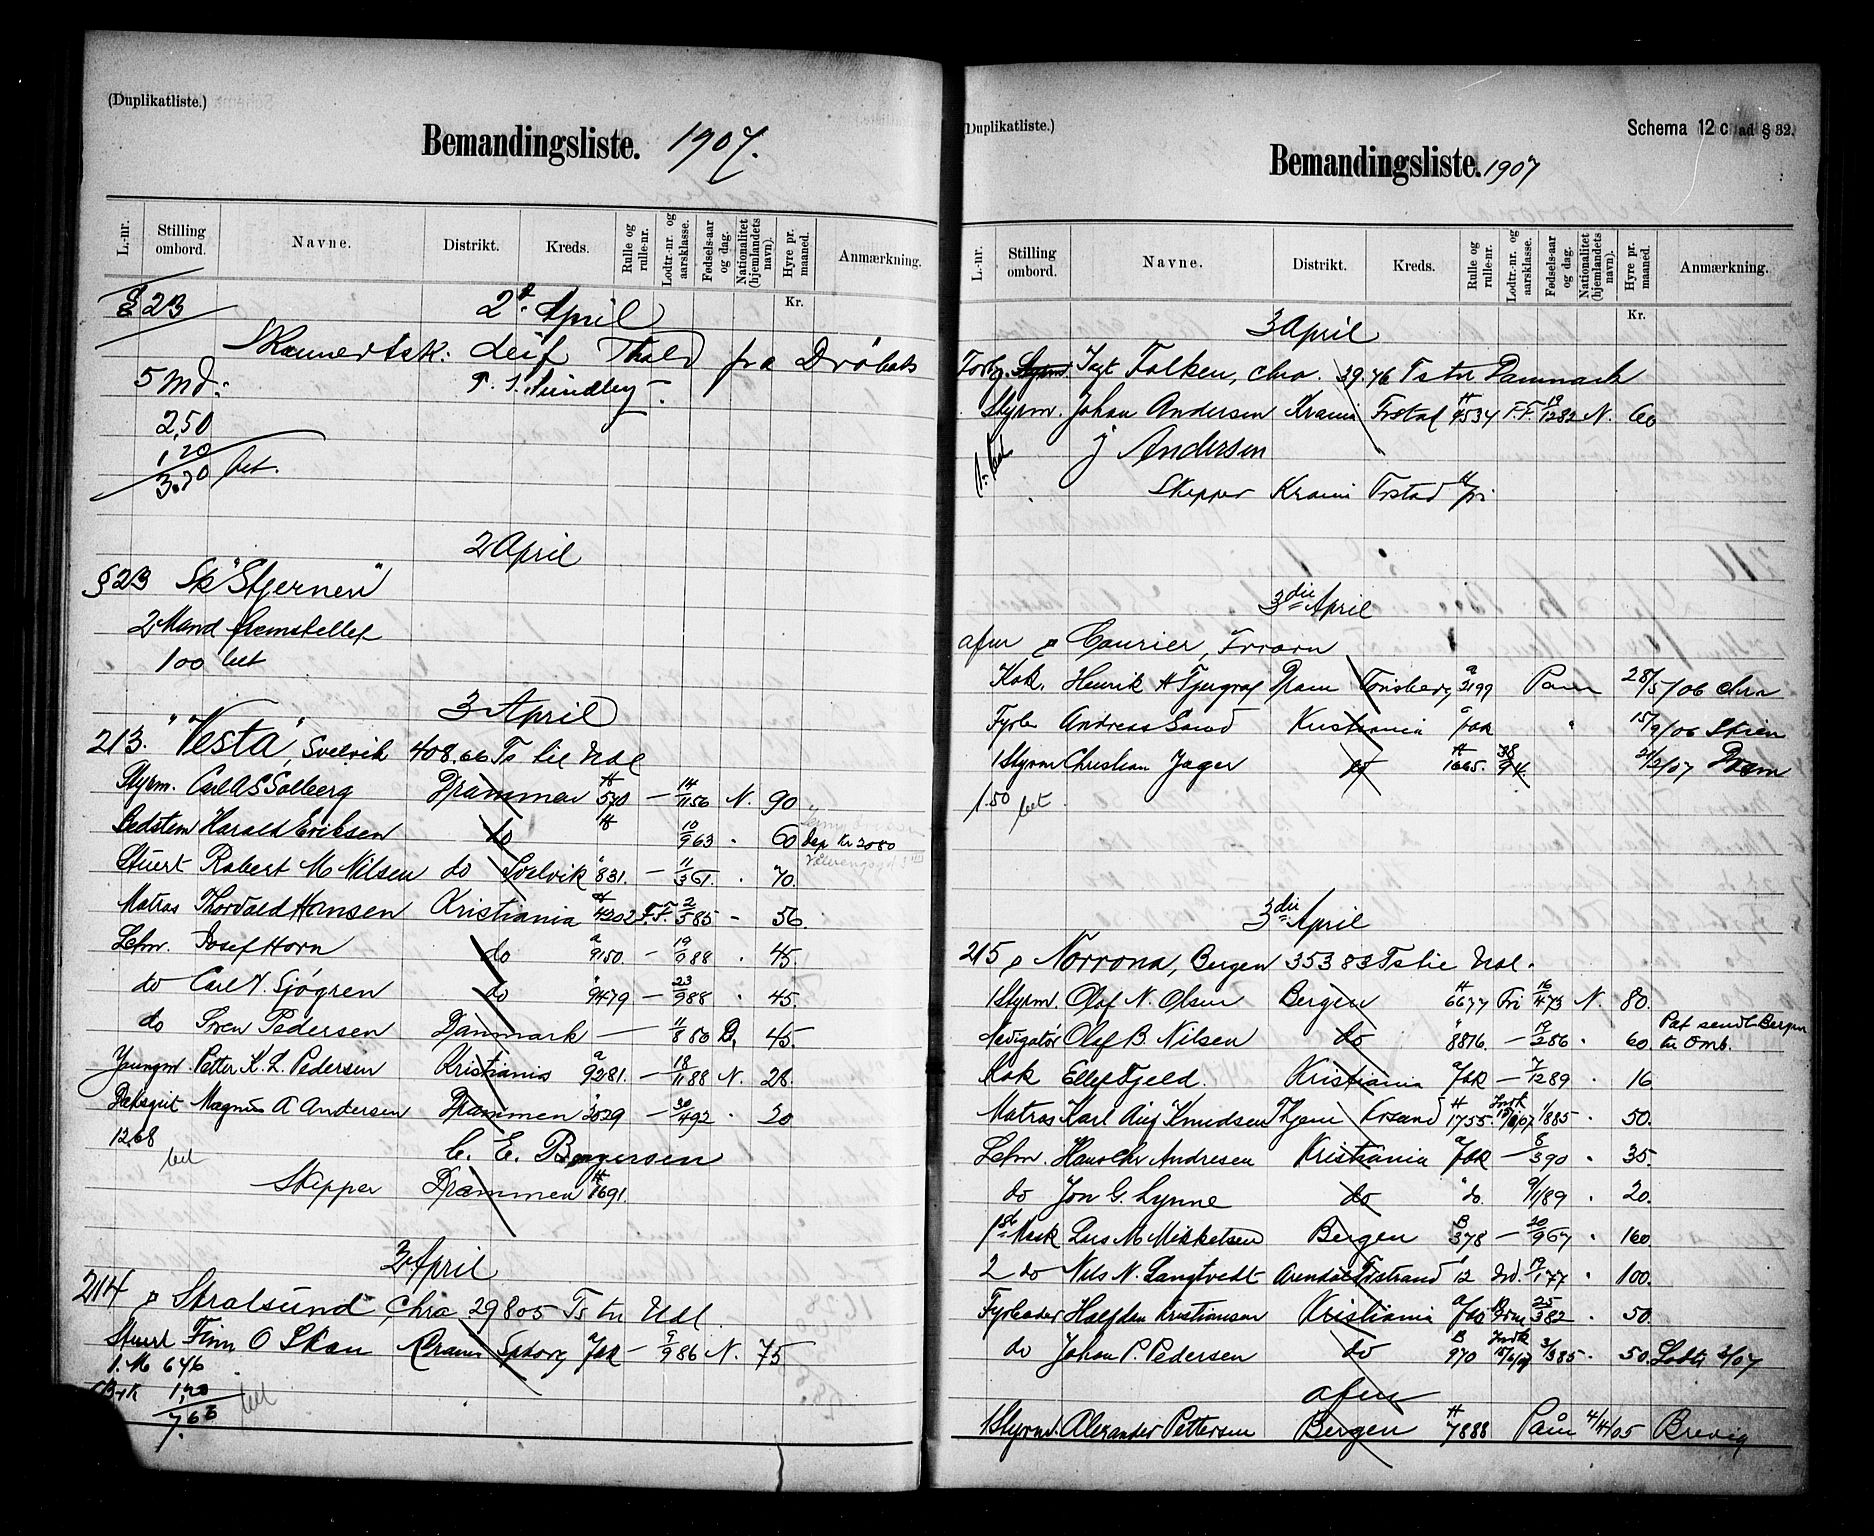 (Duplikatliste.)
Bemandingsliste. 1907.
L.-nr. Stilling ombord. Navne. Distrikt. Kreds. Rulle og rulle-nr. Lodtr.-nr. og aarsklasse. Fødsels-aar og dag. Nationalitet (hjemlandets navn). Hyre pr. maaned. Anmærkning.
Kr.
§ 23 2 April
Leif Thald fra Drøbak
5 Md: Sundbey
2,50
1,20
3.70 bet.
2 April
§ 23 Sk "Stjernen"
2 Mand fremstillet
100 bet
3 April
213. "Vesta", Svelvik 408.66 Ts til Udl
Styrm. Carl A S Solberg Drammen A 570 — 14/11 56 N. 90
Bedstem Harald Eriksen do A 10/9 63 . 60 Dep Kr 20 80
Stuert Robert M Nilsen do Svelvik " 831. — 11/3 61. . 70.
Matros Thorvald Hansen Kristiania A 4202 F.F. 2/5 85 - 56.
Letm. Josef Horn do a 9150. — 19/9 88 . 45.
do Carl V. Sjögren do " 9479 — 23/9 88 . 45.
do Søren Pedersen Danmark — 11/8 50 D. 45.
Youngm. Petter K. L. Pedersen Kristiania a 9281. — 18/11 88 N. 28.
Dæksgut Magnus A Andersen Drammen " 2029 — 30/4 92 . 20
12.68 bet C. E. Borgersen
Skipper Drammen A 1691.
3 April
214 D Stralsund, Chra 298 05 Ts til Udl.
Stuert Finn O Skau Krania Spborg a Jak — 5/9 86 N. 75
1. M 6 46
1,20
7.66 bet
(Duplikatliste.) Schema 12 c ad § 32.
Bemandingsliste. 1907
L.-nr. Stilling ombord. Navne. Distrikt. Kreds. Rulle og rulle-nr. Lodtr.-nr. og aarsklasse. Fødsels-aar og dag. Nationalitet (hjemlandets navn). Hyre pr. maaned. Anmærkning.
Kr.
3 April
Jagt Falken, Chra. 39.76 Ts til Danmark
Styrm. Johan Andersen Krania Frstad A 4534 F.F. 19/12 82 N. 60
J Andersen
Skipper Krania Frstad A fri.
3die April
afm D Courier, Tvrørn
Kok. Henrik A Fjergraf Dram Tønsberg a 3199 Paa 28/5/06 Chra
Fyrb. Andreas Sand Kristiania a Jak " 15/9/06 Skien
1 Styrm Christian Jager do A 1665. 38/94. 21/2/07 Dram
1.50 bet
3die April
215 D Norrona, Bergen 353 83 Ts til Udl.
1 Styrm. Olaf N. Olsen Bergen A 6677 Fri 16/4 73 N. 80.
Navigatør Olaf B. Nilsen do " 8816. — 19/2 86 . 60 Pat sendt Bergen til Omb.
Kok Ellef Fjeld. Kristiania a Jak — 7/12 89 . 16
Matros Karl Alf Knudsen Thjem Krsand A 1755. Indk 15/6/07 1/8 85 . 50.
Letm. Hans Chr Andresen Kristiania a Jak — 8/3 90 . 35.
do Jon G. Lynne do " do. 9/1 89 . 20.
1ste Mask Lars M Mikkelsen Bergen B 378 — 20/9 67 . 160
2 do Nils N. Langtvedt Arendal Tistrand " 12 Ud. 17/1 77 . 100.
Fyrbøder Halfdan Kristiansen Kristiania a Jak 25/3 82 . 50.
do Johan P. Pedersen do B 970 Indk 15/6/07 3/3 85 . 50. Lodts 3/07
afm
1 Styrm. Alexander Pettersen Bergen A 7888 Paa 4/4/05 Brevig